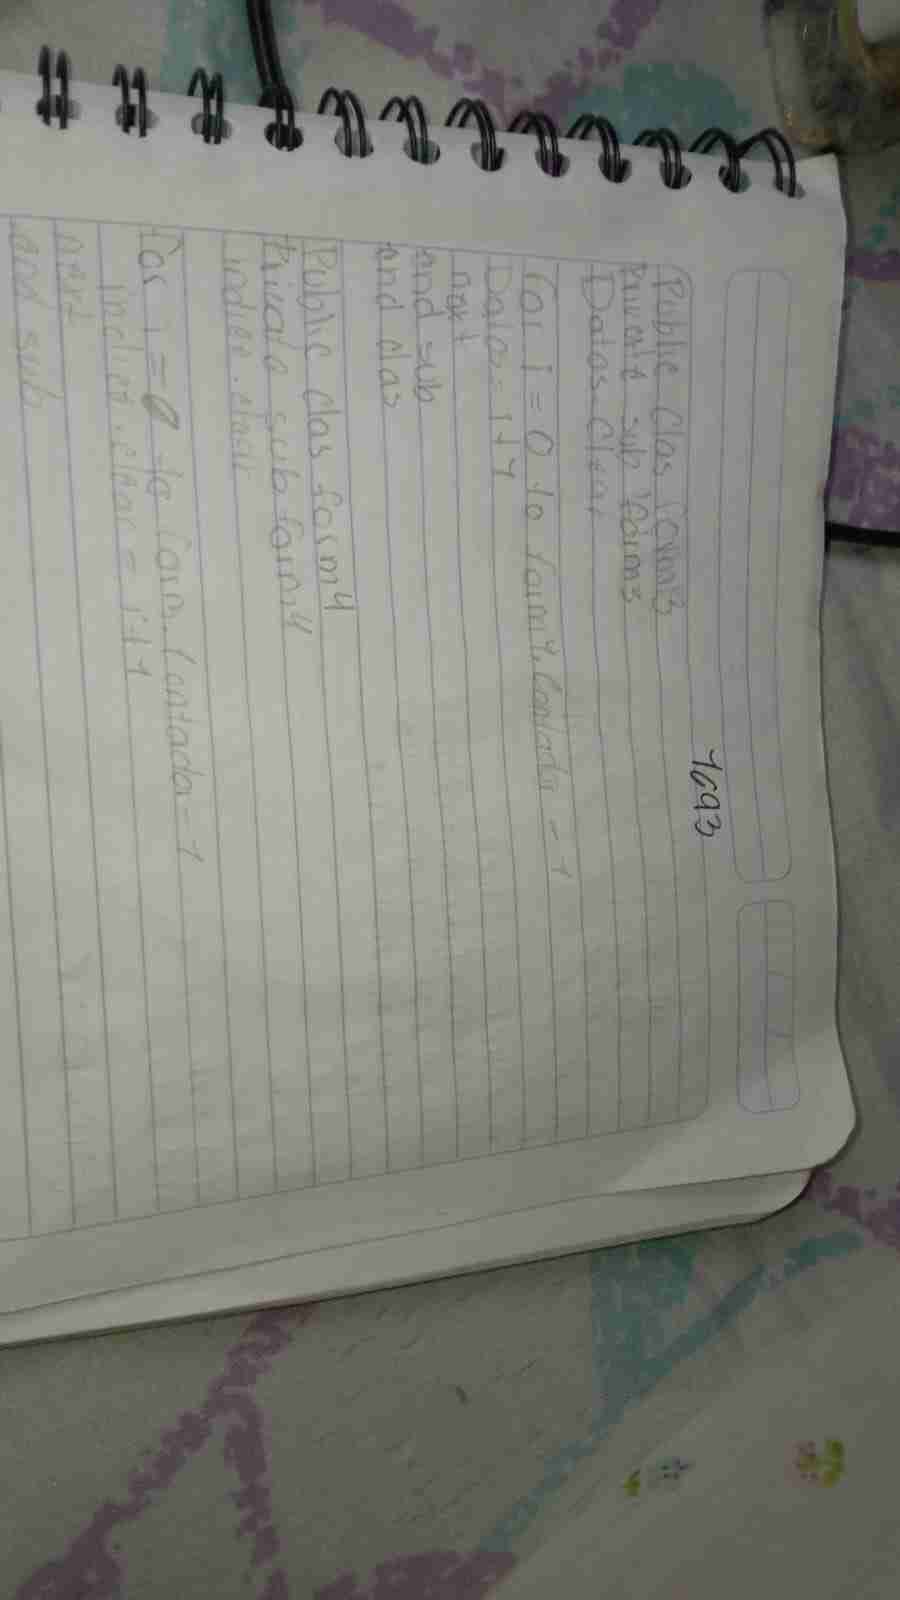 1693
Public Clas form3
Private sub form3
Datos.Clear
for i = 0 to form1.Contador - 1
Datos = i+1
next
end sub
end clas
Public clas form4
Private sub form4
indice.clear
for i = 0 to form.Contador - 1
next
end sub